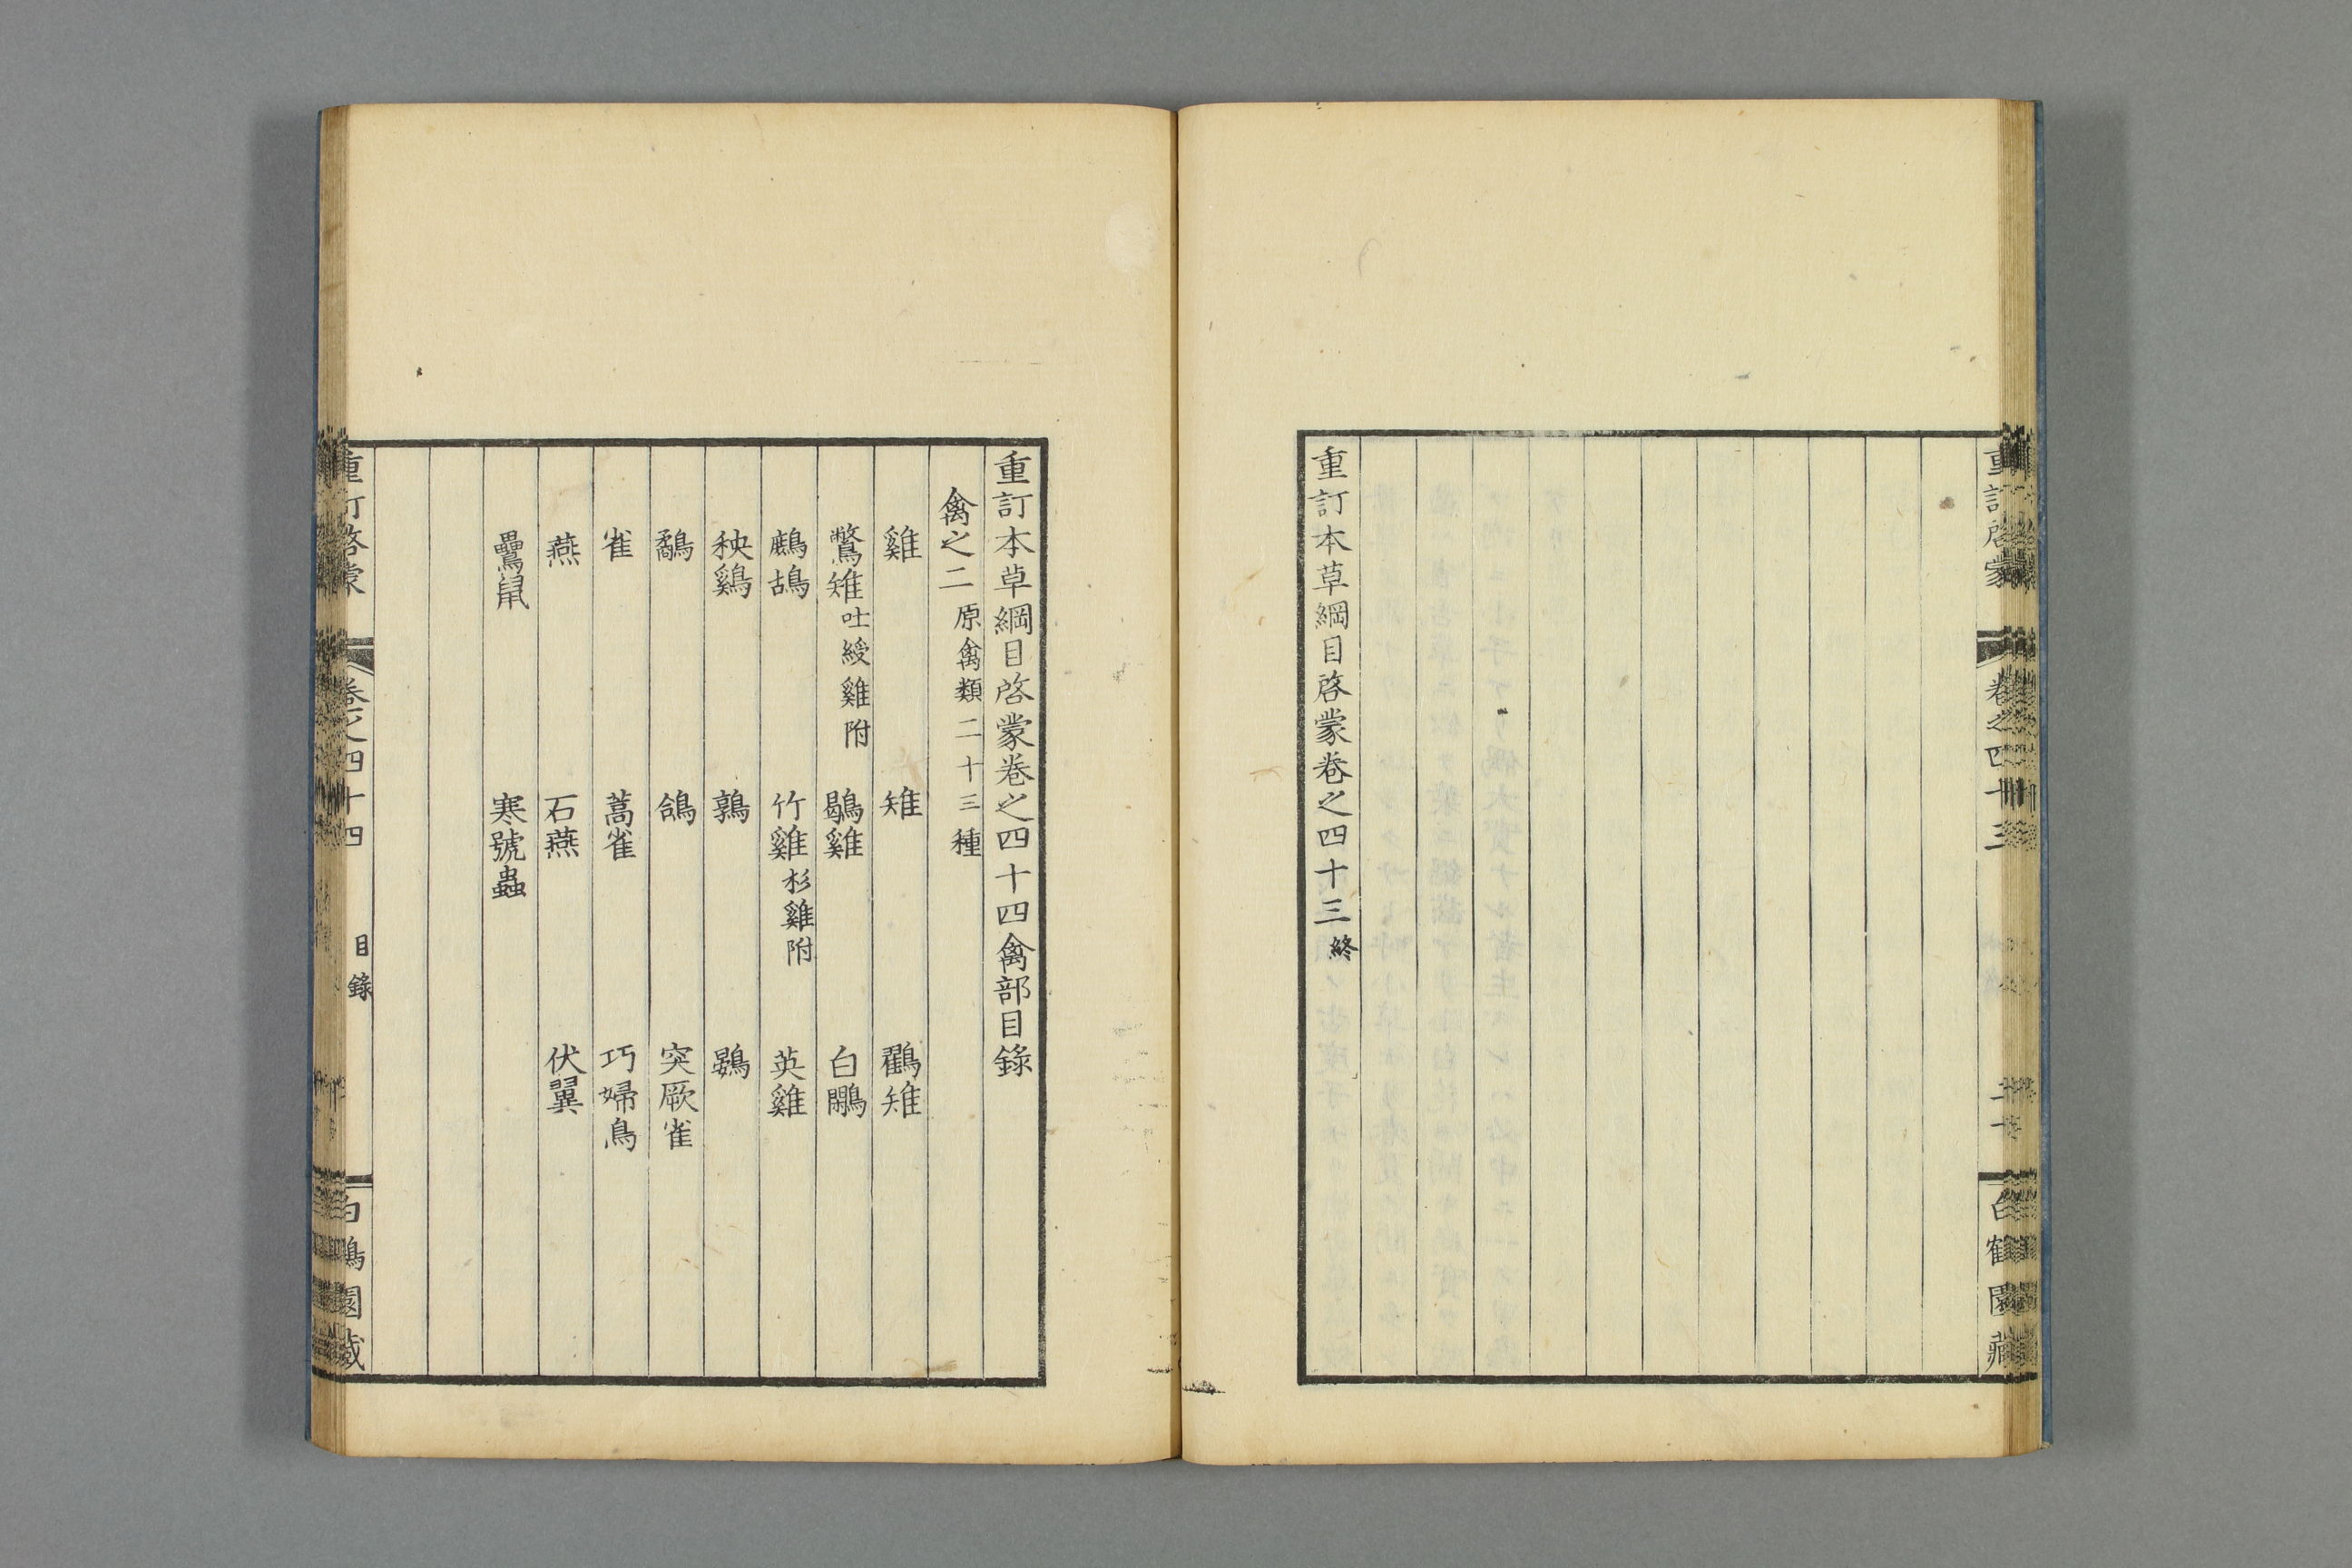 重訂本草綱目啓蒙巻之四十三終
重訂啓蒙　巻之四十三　白鶴園藏
重訂本草綱目啓蒙巻之四十四禽部目錄
禽之二原禽類二十三種
雞　雉　鸐雉
鷩雉吐綬雞附　鶡雞　白鷴
鷓鴣　竹雞杉雞附　英雞
秧鷄　鶉　鷃
鷸　鴿　突厥雀
雀　蒿雀　巧婦鳥
燕　石燕　伏翼
鸓鼠　寒號蟲
重訂啓蒙　巻之四十四　目錄　白鶴園藏